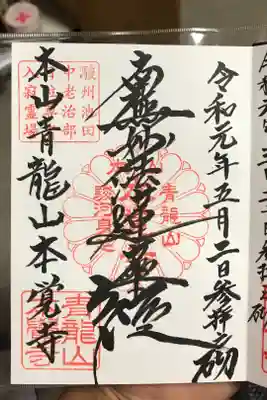 令和元年五月二日参拝之砌
南無妙法蓮華経
青龍山
駿河身延
駿州池田
中老治部
入寂霊場
本山青龍山本覚寺
青龍山
本覚寺